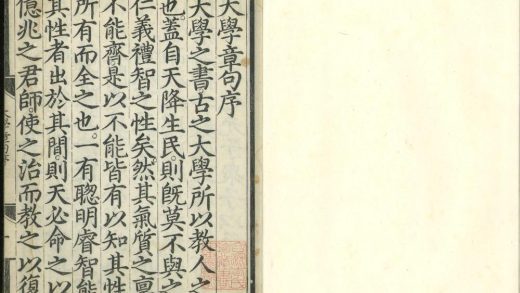 大學章句序
大學之書古之大學所以教人之
也蓋自天降生民。則旣莫不與之
仁義禮智之性矣。然其氣質之稟
不能齊。是以不能皆有以知其性
所有而全之也。一有聰明睿智能
其性者出於其間。則天必命之以
億兆之君師。使之治而教之以復